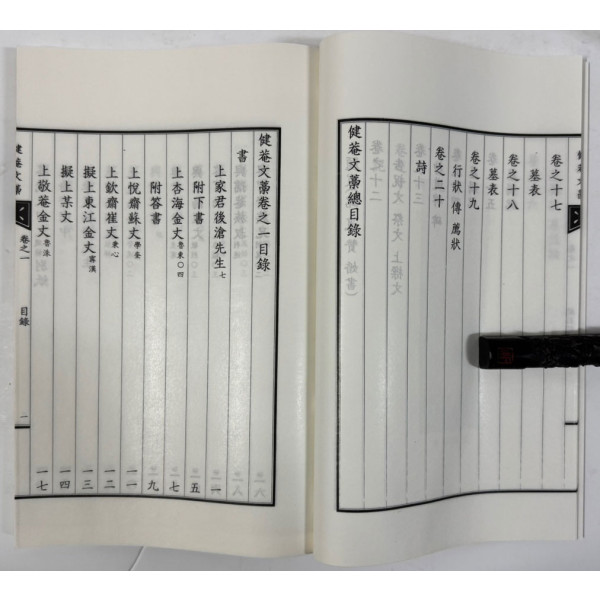 卷之十七
墓表
卷之十八
墓表
卷之十九
行狀 傳 薦狀
卷之二十
詩
健菴文藁總目錄
健菴文藁卷之一目錄
書
上家君後滄先生 七 一
附下書 五
上杏海金丈 魯東○四 七
附答書 九
上悅齋蘇丈 學奎 一一
上欽齋崔丈 秉心 一二
擬上東江金丈 甯漢 一三
擬上某丈 一四
上敬菴金丈 魯洙 一七
健菴文藁
卷之一
目錄
一